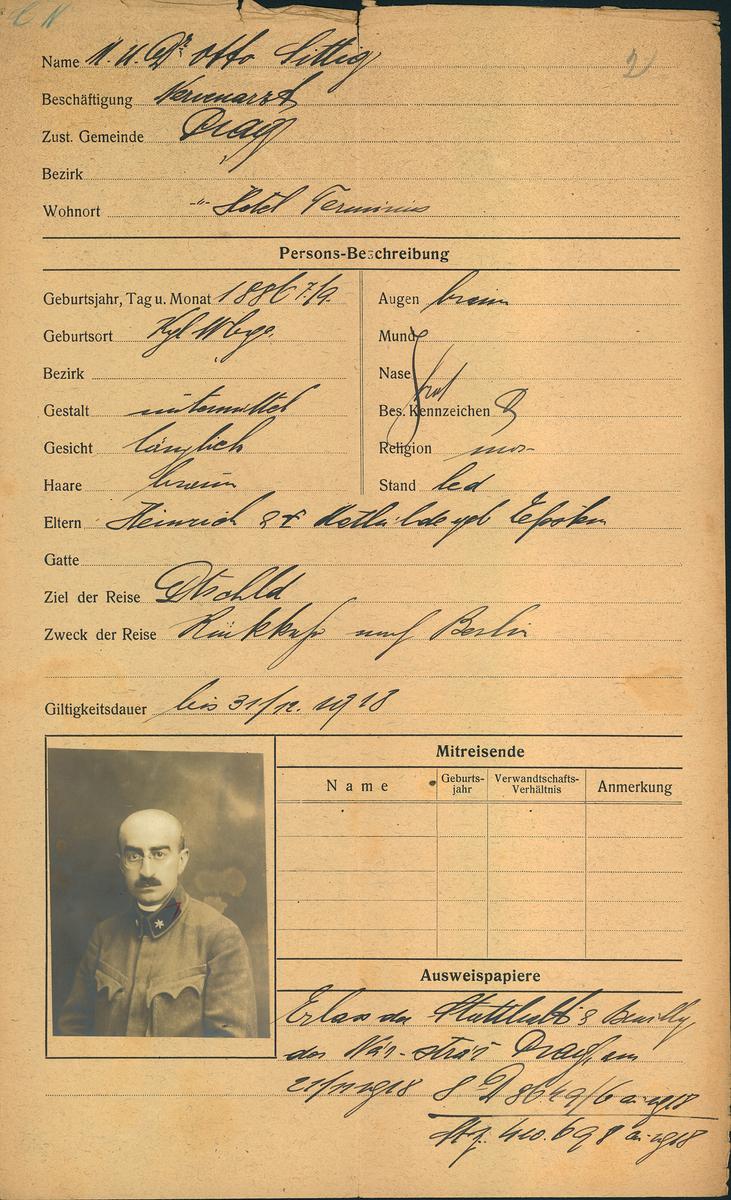 Name M. U. Dr Otto Sittig
2
Beschäftigung Nervenarzt
Zust. Gemeinde Prag
Bezirk
Wohnort -"- Hotel Terminus
Persons-Beschreibung
Geburtsjahr, Tag u. Monat 1886 7/9.
Geburtsort Kgl Wbge.
Bezirk
Gestalt untermittel
Gesicht länglich
Haare braun
Augen braun
Mund
Nase
prop
Bes. Kennzeichen
Religion mos
Stand led
Eltern Heinrich & Mathilde geb
Gatte
Ziel der Reise Dtschld
Zweck der Reise Rückkehr nach Berlin
Giltigkeitsdauer bis 31/12. 1918
Mitreisende
Name
Geburts-jahr
Verwandtschafts-Verhältnis
Anmerkung
Ausweispapiere
Erlass der Statth. &
der Prag, am
21/11 1918 8 D 8649/6 ai 1918
410.698 ai 1918